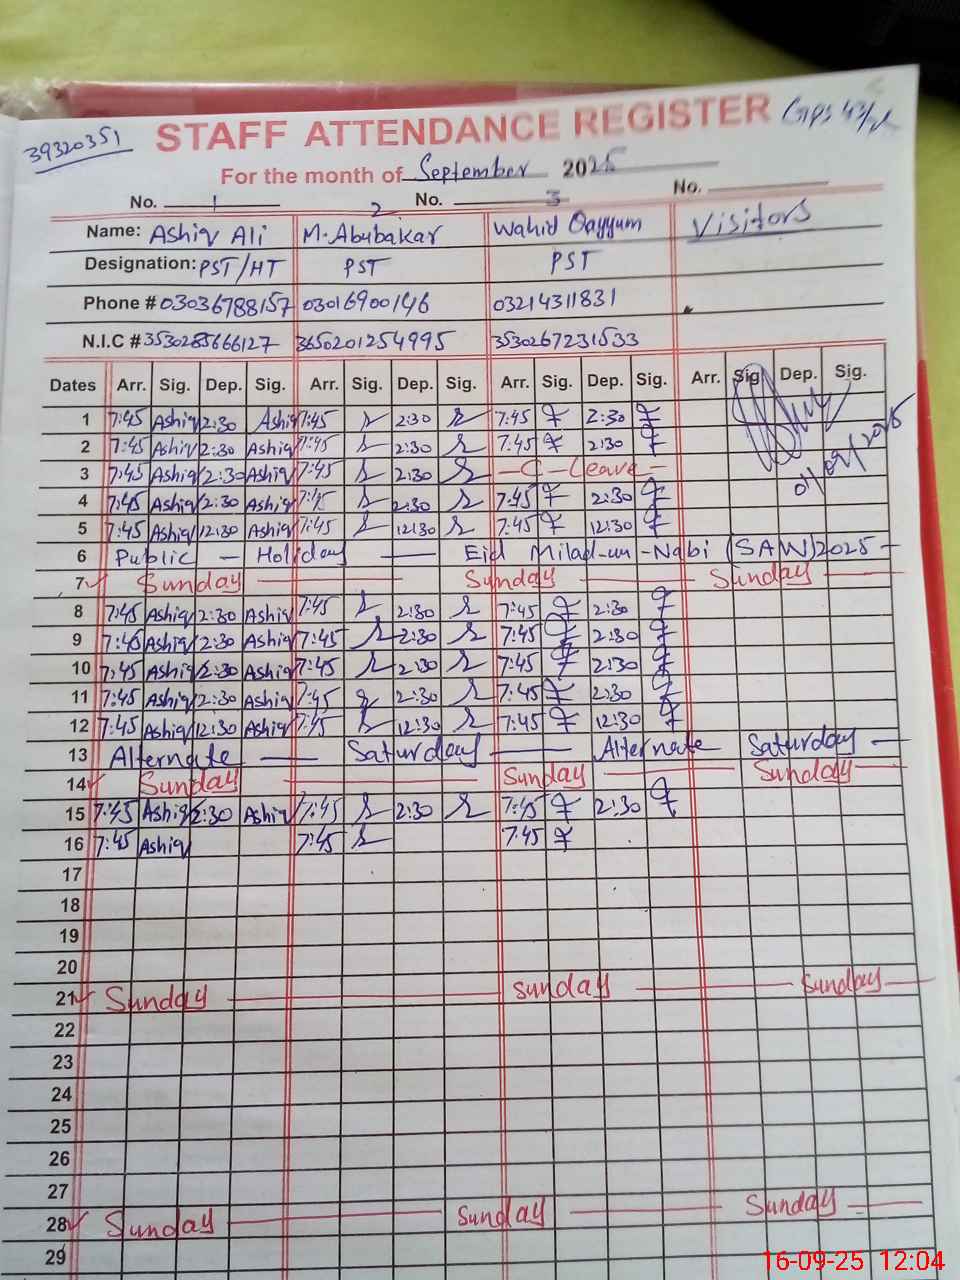 39320351 STAFF ATTENDANCE REGISTER GPS 43/
For the month of September 2025
No. 1 No. 2 3 No.
Name: Ashiq Ali M. Abubakar Wahid Qayyum Visitors
Designation: PST/HT PST PST
Phone # 03036788157 03016900146 03214311831
N.I.C # 3530285666127 3650201254995 3530267231533
Dates Arr. Sig. Dep. Sig. Arr. Sig. Dep. Sig. Arr. Sig. Dep. Sig. Arr. Sig Dep. Sig.
1 7:45 Ashiq 2:30 Ashiq 7:45 2:30 7:45 2:30
2 7:45 Ashiq 2:30 Ashiq 7:45 2:30 7:45 2:30
3 7:45 Ashiq 2:30 Ashiq 7:45 2:30 - C - Leave - 04/09/2025
4 7:45 Ashiq 2:30 Ashiq 7:45 2:30 7:45 2:30
5 7:45 Ashiq 12:30 Ashiq 7:45 12:30 7:45 12:30
6 Public - Holiday - Eid Milad-un-Nabi (SAW) 2025 -
7 Sunday Sunday Sunday
8 7:45 Ashiq 2:30 Ashiq 7:45 2:30 7:45 2:30
9 7:45 Ashiq 2:30 Ashiq 7:45 2:30 7:45 2:30
10 7:45 Ashiq 2:30 Ashiq 7:45 2:30 7:45 2:30
11 7:45 Ashiq 2:30 Ashiq 7:45 2:30 7:45 2:30
12 7:45 Ashiq 12:30 Ashiq 7:45 12:30 7:45 12:30
13 Alternate - Saturday - Alternate Saturday -
14 Sunday Sunday Sunday
15 7:45 Ashiq 2:30 Ashiq 7:45 2:30 7:45 2:30
16 7:45 Ashiq 7:45 7:45
17
18
19
20
21 Sunday Sunday Sunday
22
23
24
25
26
27
28 Sunday Sunday Sunday
29
16-09-25 12:04